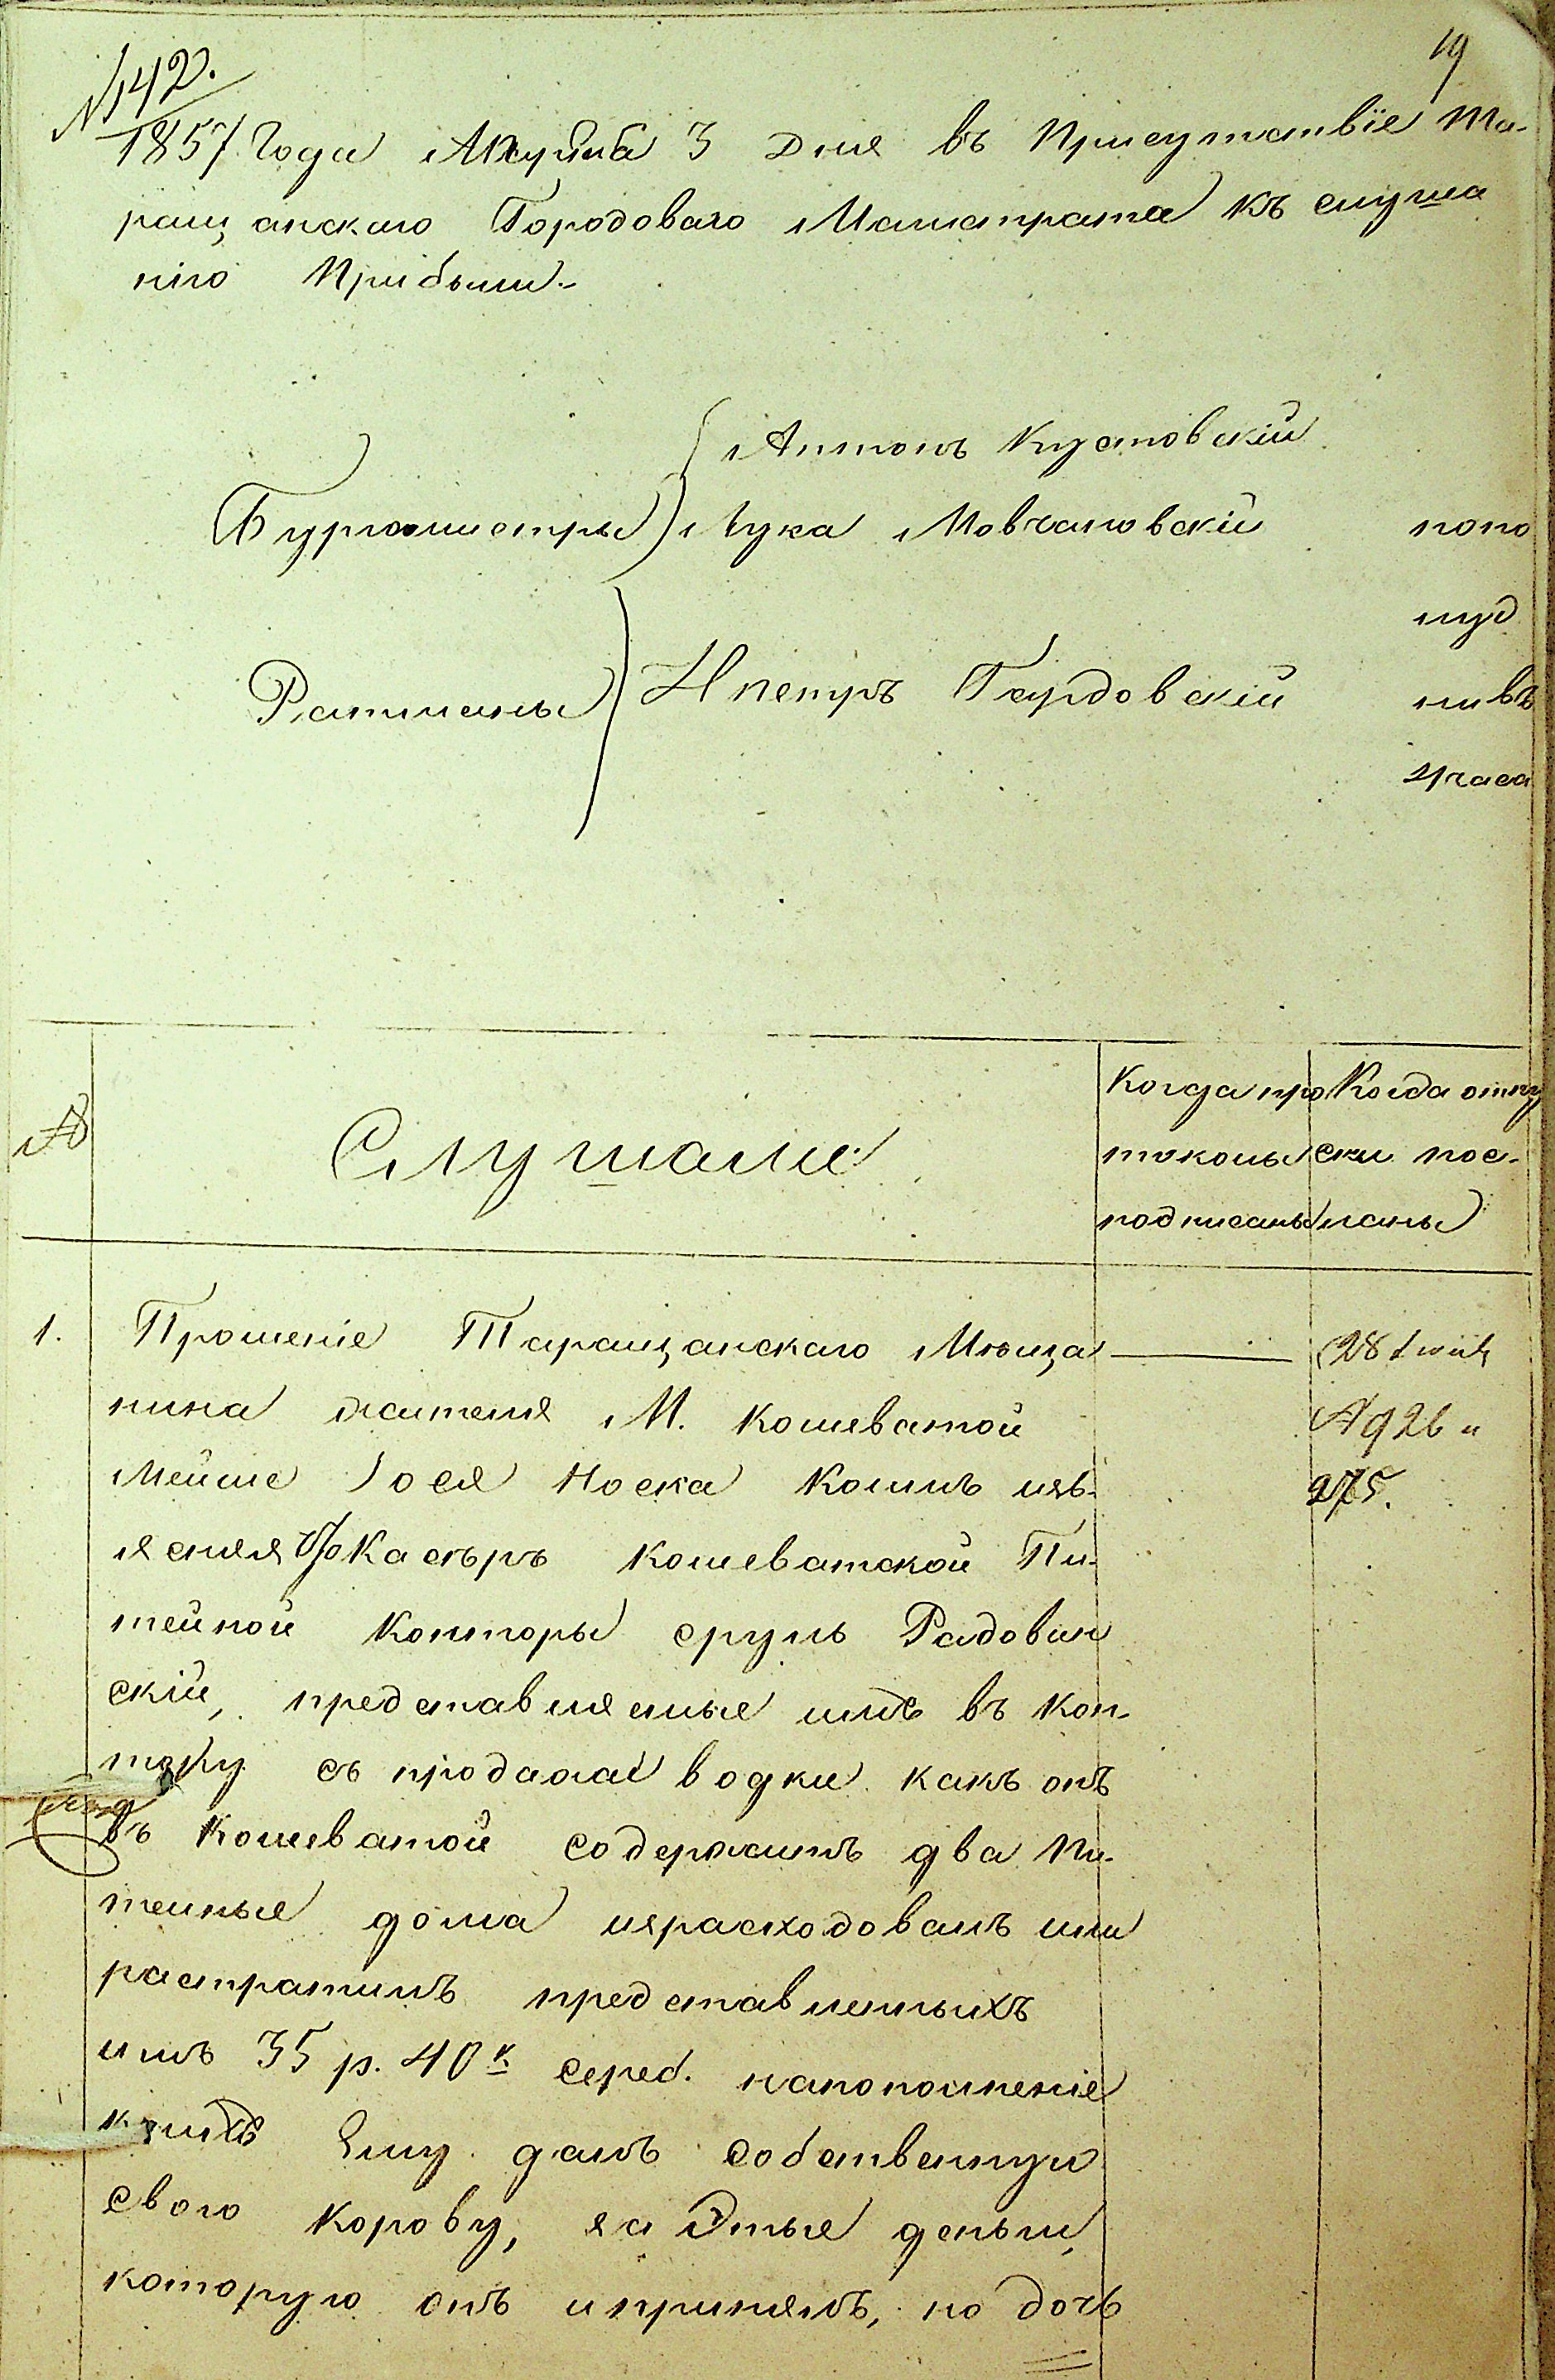 № 142.
19
1857 Года Апреля 3 дня въ Присутствіе Та-
ращанскаго Городоваго Магистрата къ слуша
нію Прибыли.-
Антонъ Кустовскій
Бургомистры Лука Мовчановскій
попо
луд
Ратманы И петръ Гардовскій
нивъ
часа
№
Слушали
Когда про
токолы
подписаны
Когда отпу
ски пос-
ланы
1. Прошеніе Таращанскаго Мѣща
нина жителя М. Кошеватой
Мейше Іося Носка коимъ изъ-
ясняя что Касѣръ Кошеватской Пи-
тейной Конторы сруль Радовин
скій, представляемые имъ въ Кон-
тору съ продажи водки какъ онъ
въ Кошеватой содержитъ два Пи-
тейные дома израсходовалъ или
растратилъ представленныхъ
имъ 35 р. 40 к сереб. на пополненіе
коихъ Ему далъ собственную
свою корову, за Этые деньги,
которую онъ и принялъ, но дочь
28 Іюня
№ 926 и
275.